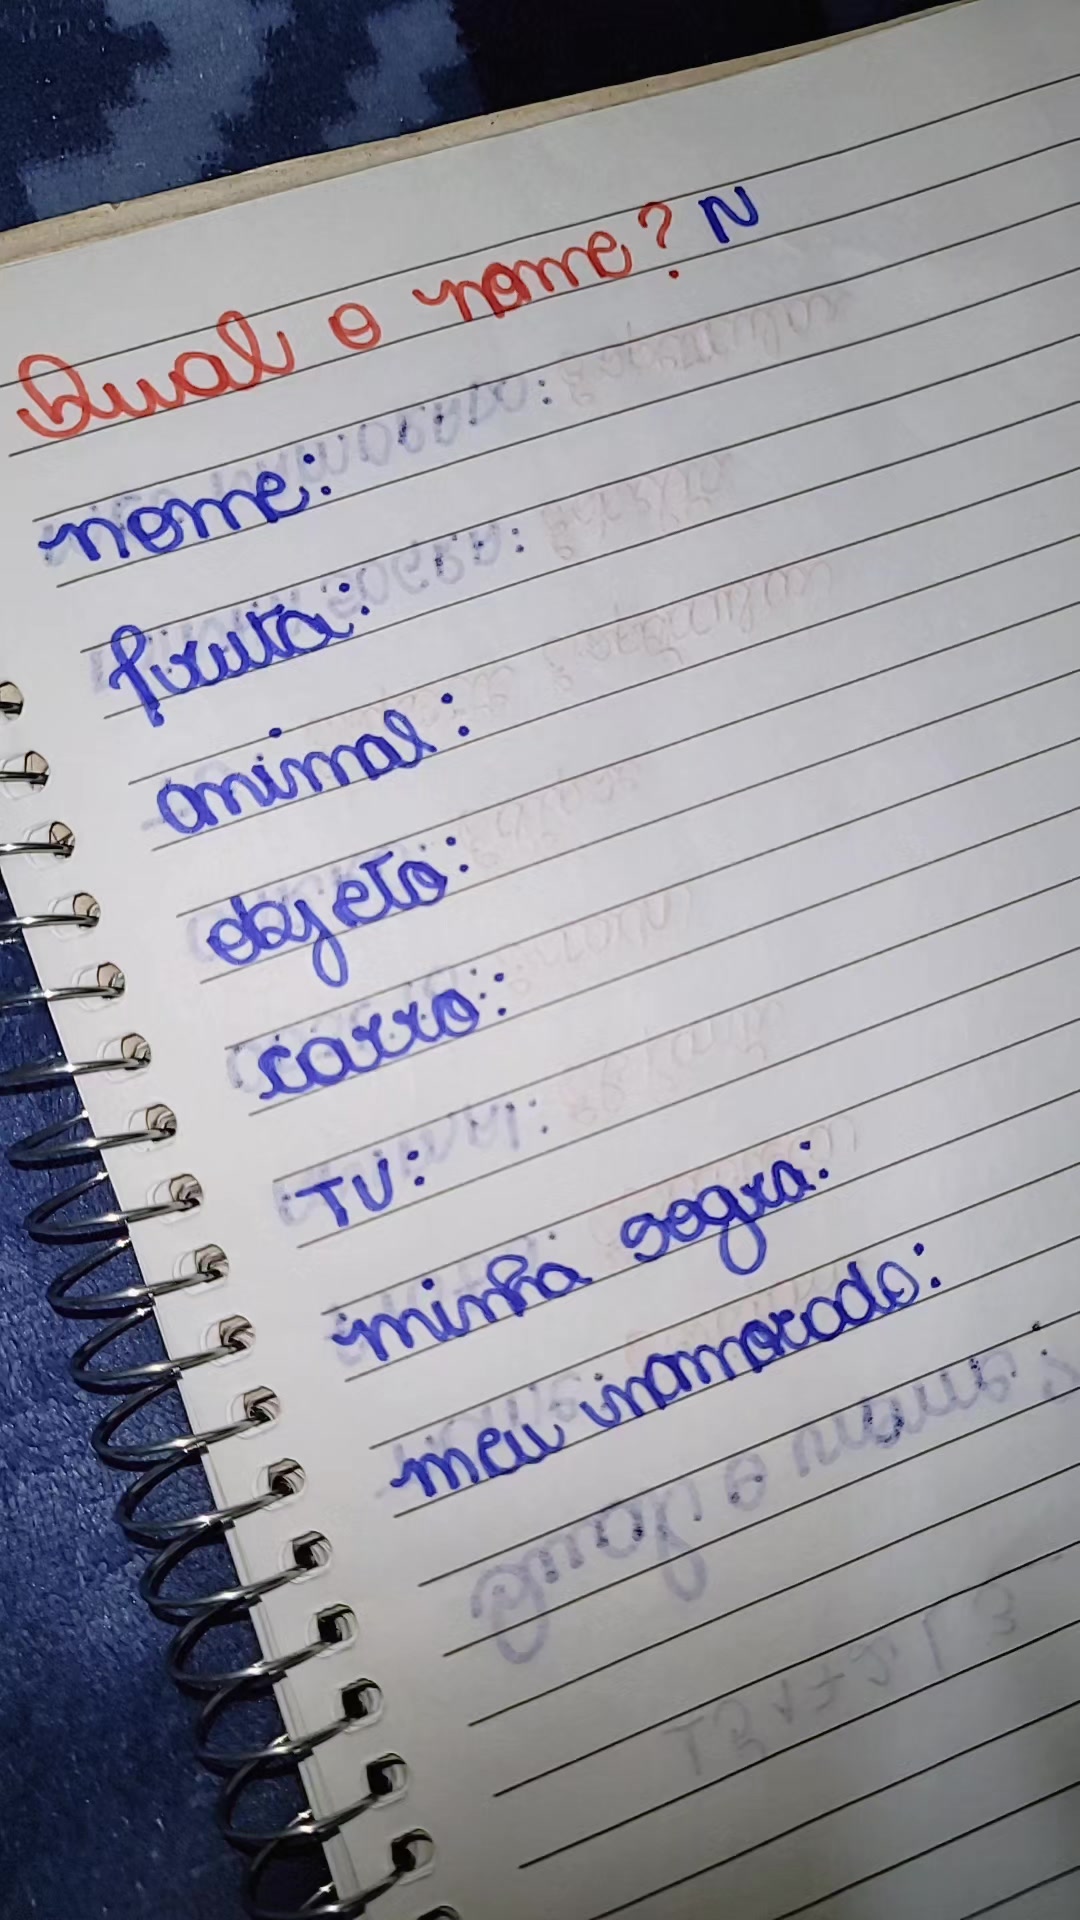 Qual o nome? N
nome:
fruta:
animal:
objeto:
carro:
TV:
minha sogra:
meu namorado: